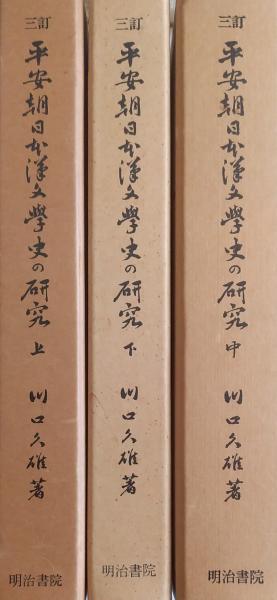 三訂
平安朝日本漢文學史の研究 上
川口久雄著
明治書院
三訂
平安朝日本漢文學史の研究 下
川口久雄著
明治書院
三訂
平安朝日本漢文學史の研究 中
川口久雄著
明治書院